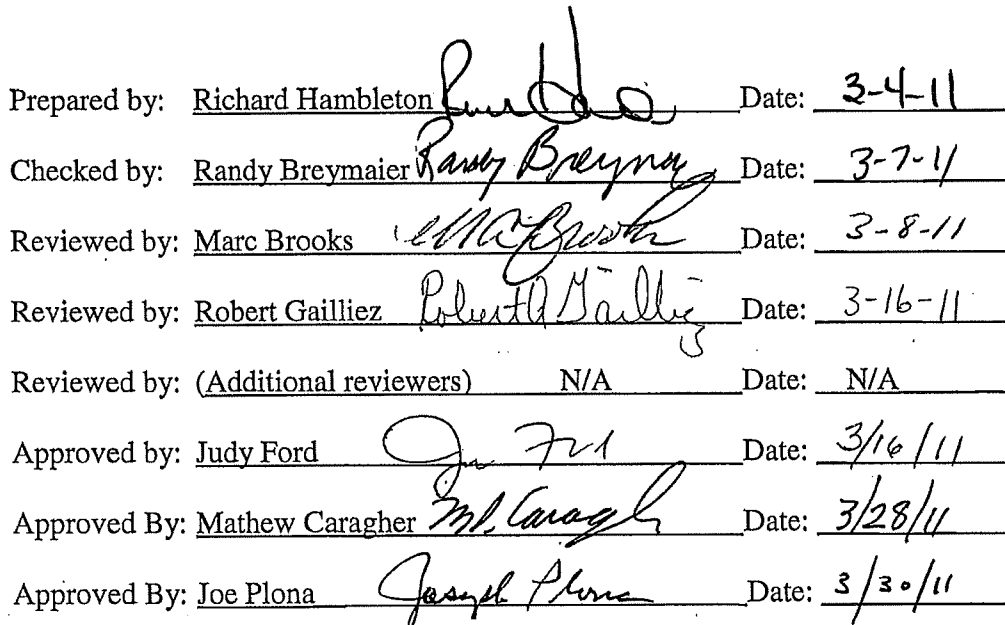 Prepared by: Richard Hambleton Date: 3-4-11
Checked by: Randy Breymaier Randy Breymaier Date: 3-7-11
Reviewed by: Marc Brooks Date: 3-8-11
Reviewed by: Robert Gailliez Robert A Gailliez Date: 3-16-11
Reviewed by: (Additional reviewers) N/A Date: N/A
Approved by: Judy Ford Date: 3/16/11
Approved By: Mathew Caragher Date: 3/28/11
Approved By: Joe Plona Joseph Plona Date: 3/30/11